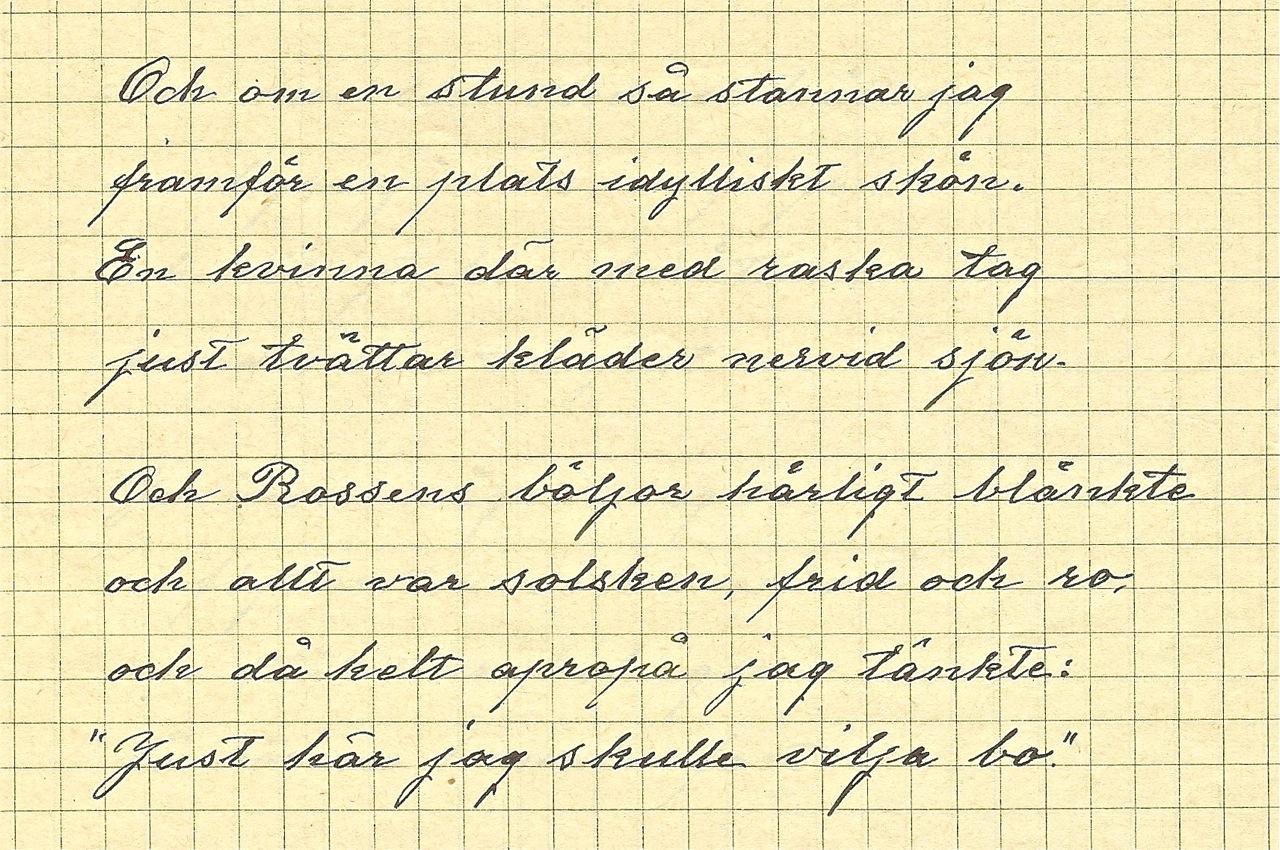 Och om en stund så stannar jag
framför en plats idylliskt skön.
En kvinna där med raska tag
just tvättar kläder nervid sjön.
Och Rossens böljor härligt blänkte
och allt var solsken, frid och ro,
och då helt apropå jag tänkte:
"Just här jag skulle vilja bo."